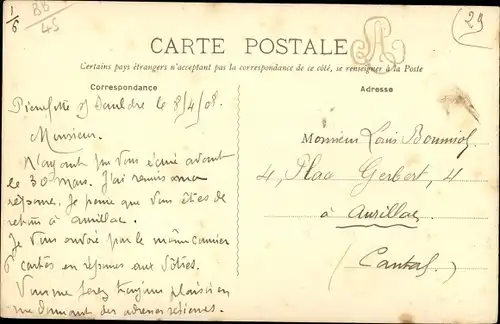 1/6
BB
45
29
CARTE POSTALE
Certains pays étrangers n'acceptant pas la correspondance de ce côté, se renseigner à la Poste
Correspondance
Pierrefitte s/ Sauldre le 8/4/08.
Monsieur.
N'ayant pu vous écrire avant
le 30 Mars. J'ai remis ma
réponse, je pense que vous êtes de
retour à aurillac.
Je vous envoie par le même courrier
6 cartes en réponse aux vôtres.
Vous me ferez toujours plaisir en
me donnant des adresses
Adresse
Monsieur Louis Bonniol
4, Place Gerbert, 4
à Aurillac
(Cantal)